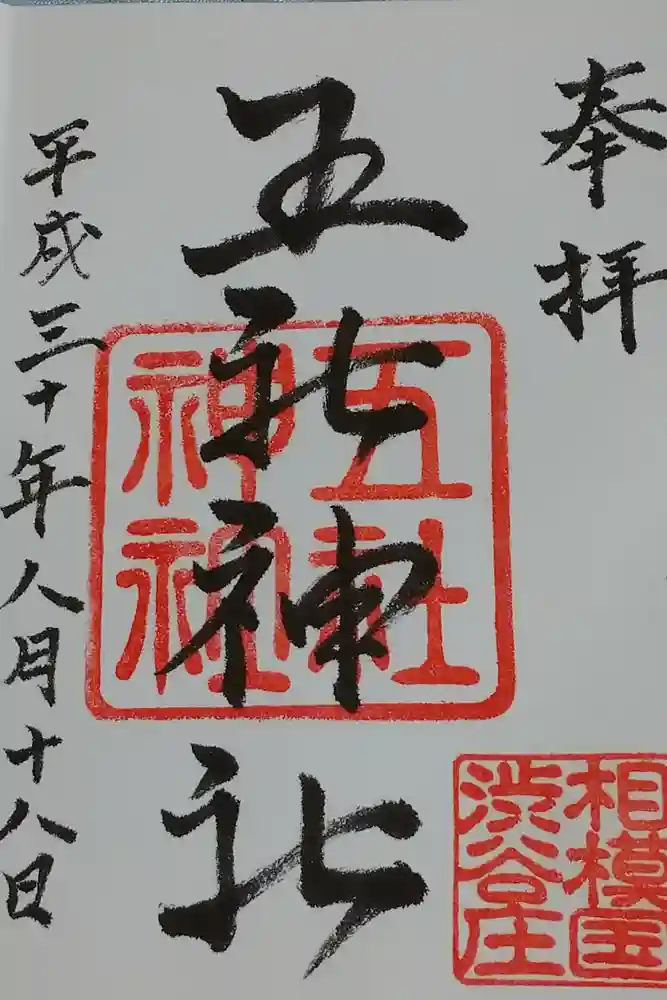 奉拝
五社神社
五社
神社
相模国
渋谷庄
平成三十年八月十八日